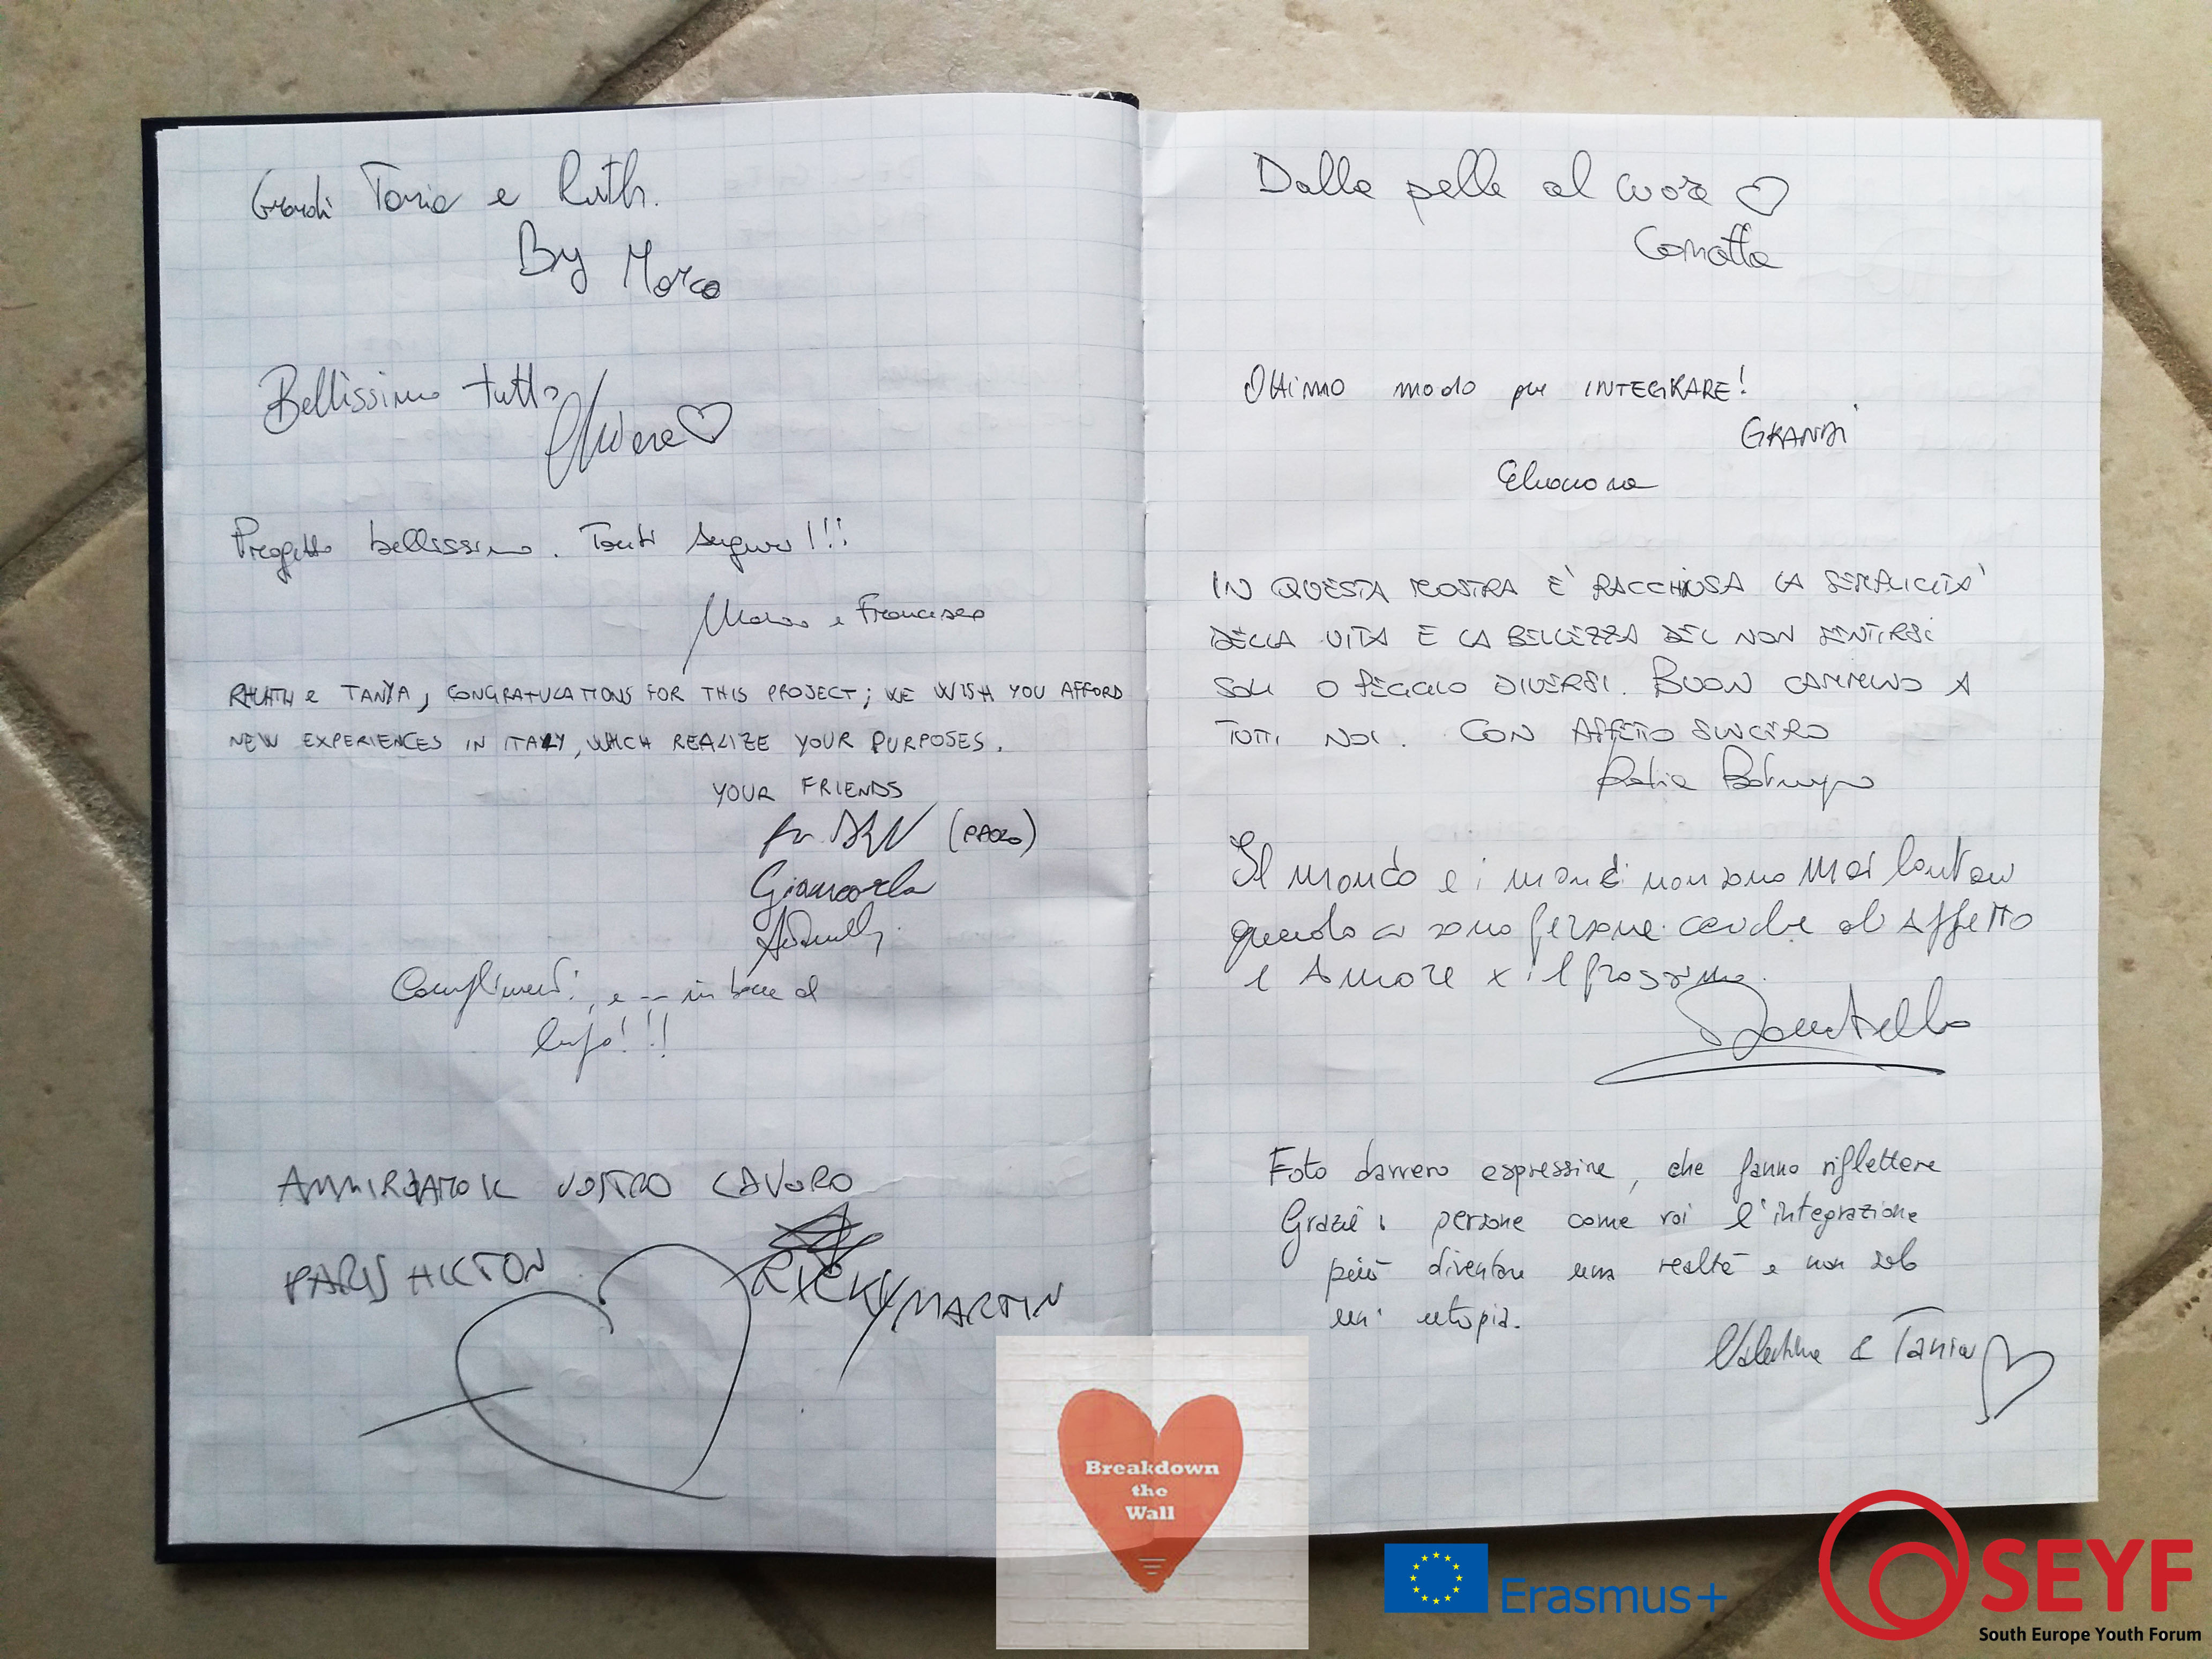 Grandi Tania e Ruth.
By Marco
Bellissimo tutto
Progetto bellissimo. Tanti auguri!!!
e Francesco
RHUTH e TANYA, CONGRATULATIONS FOR THIS PROJECT; WE WISH YOU AFFORD
NEW EXPERIENCES IN ITALY, WHICH REALIZE YOUR PURPOSES.
YOUR FRIENDS
(PAOLO)
Giancarla
Complimenti, e -- in bocca al
lupo!!!
AMMIRIAMO IL VOSTRO LAVORO
PARIS HILTON
RICKY MARTIN
Dalla pelle al cuore
Ottimo modo per INTEGRARE!
GRANDI
Eleonora
IN QUESTA MOSTRA E' RACCHIUSA LA SEMPLICITA'
DELLA VITA E LA BELLEZZA DEL NON SENTIRSI
SOLI O PEGGIO DIVERSI. BUON CAMMINO A
TUTTI NOI. CON AFFETTO SINCERO
Katia
Il mondo e i mondi non sono mai lontani
quando ci sono persone cariche di affetto
e Amore x il prossimo.
Donatella
Foto davvero espressive, che fanno riflettere
Grazie a persone come voi l'integrazione
può diventare una realtà e non solo
un' utopia.
Valentina e Tania
Breakdown
the
Wall
Erasmus+
SEYF
South Europe Youth Forum